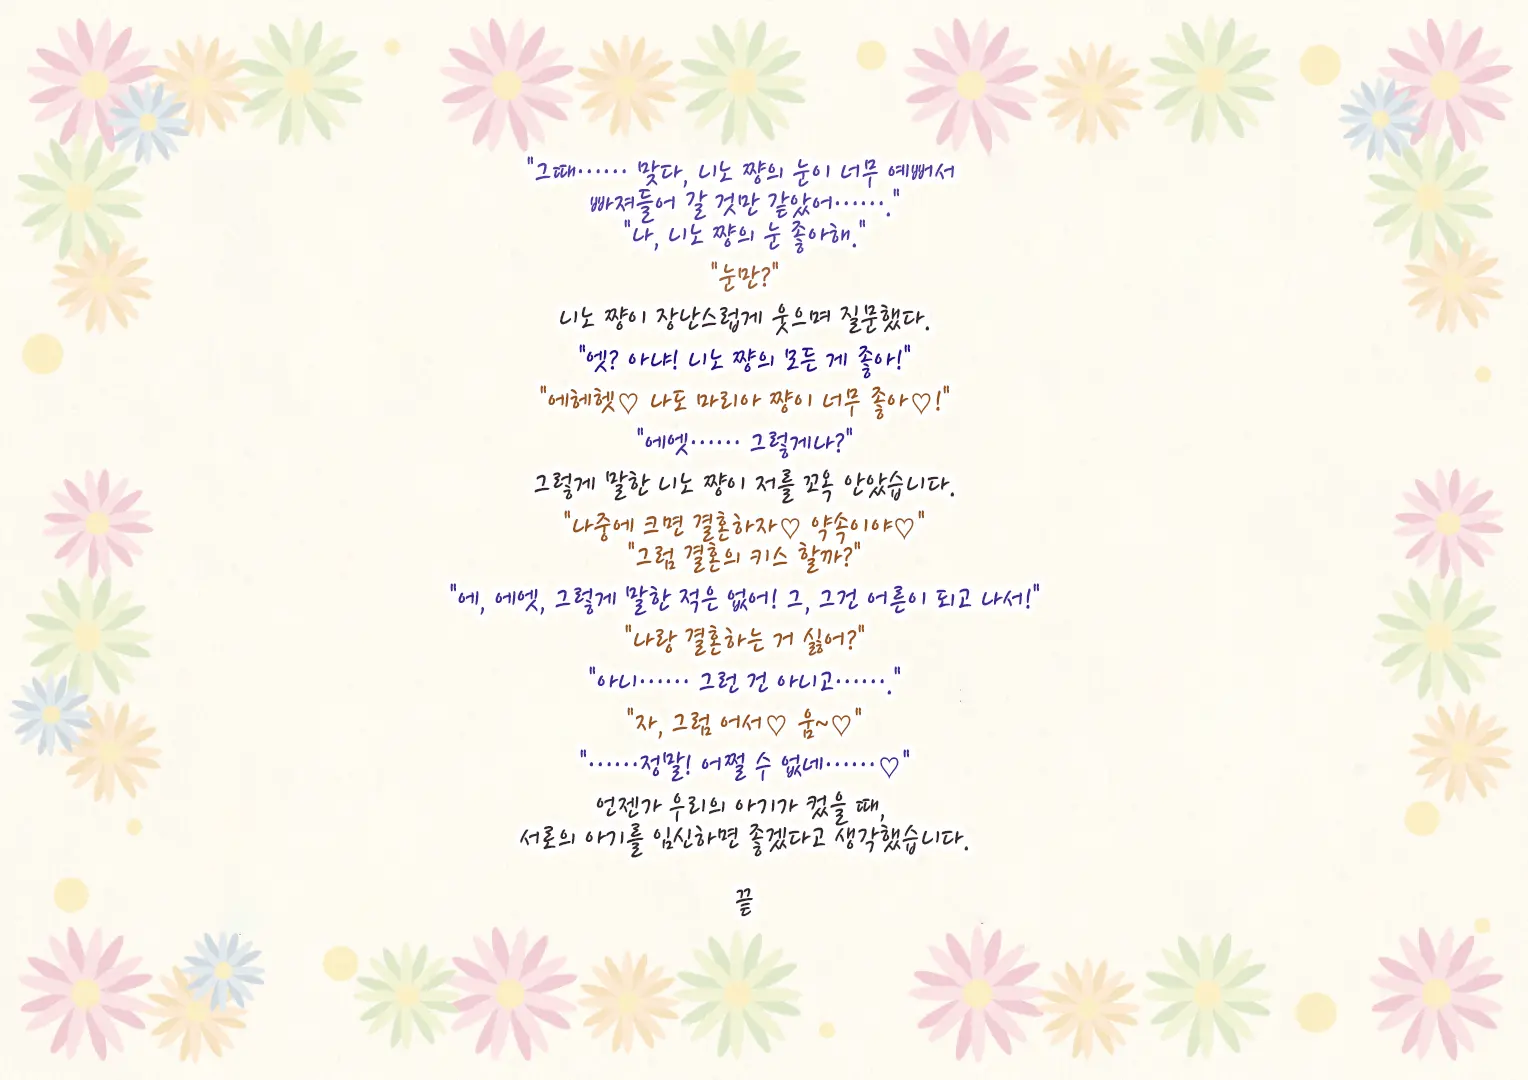 "그때…… 맞다, 니노 쨩의 눈이 너무 예뻐서
빠져들어 갈 것만 같았어……."
"나, 니노 쨩의 눈 좋아해."
"눈만?"
니노 쨩이 장난스럽게 웃으며 질문했다.
"엣? 아냐! 니노 쨩의 모든 게 좋아!"
"에헤헷♡ 나도 마리아 쨩이 너무 좋아♡!"
"에엣…… 그렇게나?"
그렇게 말한 니노 쨩이 저를 꼬옥 안았습니다.
"나중에 크면 결혼하자♡ 약속이야♡"
"그럼 결혼의 키스 할까?"
"에, 에엣, 그렇게 말한 적은 없어! 그, 그건 어른이 되고 나서!"
"나랑 결혼하는 거 싫어?"
"아니…… 그런 건 아니고……."
"자, 그럼 어서♡ 움~♡"
"……정말! 어쩔 수 없네……♡"
언젠가 우리의 아기가 컸을 때,
서로의 아기를 임신하면 좋겠다고 생각했습니다.
끝